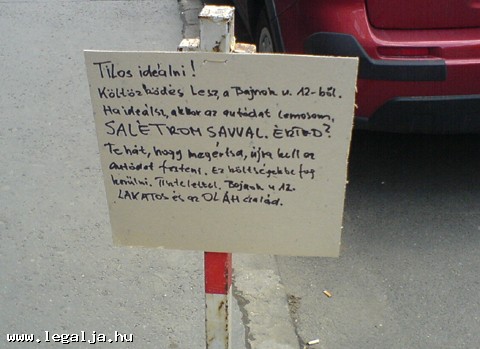 Tilos ideálni!
Költözködés Lesz, a Bajnok u. 12-ből.
Ha ideálsz, akkor az autódat lemosom,
SALÉTROM SAVVAL. ÉRTED?
Tehát, hogy megértsd, újra kell az
autódat festeni. Ez költségekbe fog
kerülni. Tisztelettel. Bajnok u 12.
LAKATOS és az OLÁH család.
www.legalja.hu